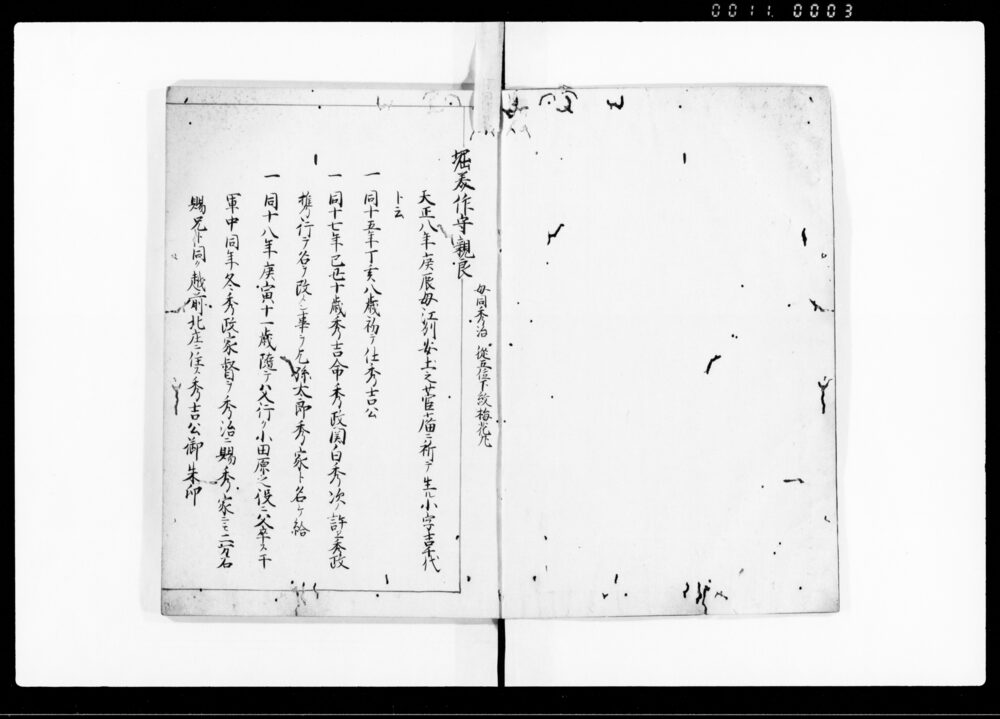 0011 0003
堀美作守親良
母同秀治 従五位下紋梅花
天正八年庚辰母江刕安土之菅庿ニ祈テ生ル小字吉千代
ト云
一 同十五年丁亥八歳初テ仕秀吉公
一 同十七年己丑十歳秀吉命秀政関白秀次ノ許エ秀政
携行テ名ヲ改ン事ヲ乞孫太郎秀家ト名ケ給
一 同十八年庚寅十一歳隨テ父行ク小田原之役ニ父卒ス于
軍中同年冬秀政家督ヲ秀治ニ賜秀家ニモ二万石
賜兄ト同ク越前北庄ニ住ス秀吉公御朱印